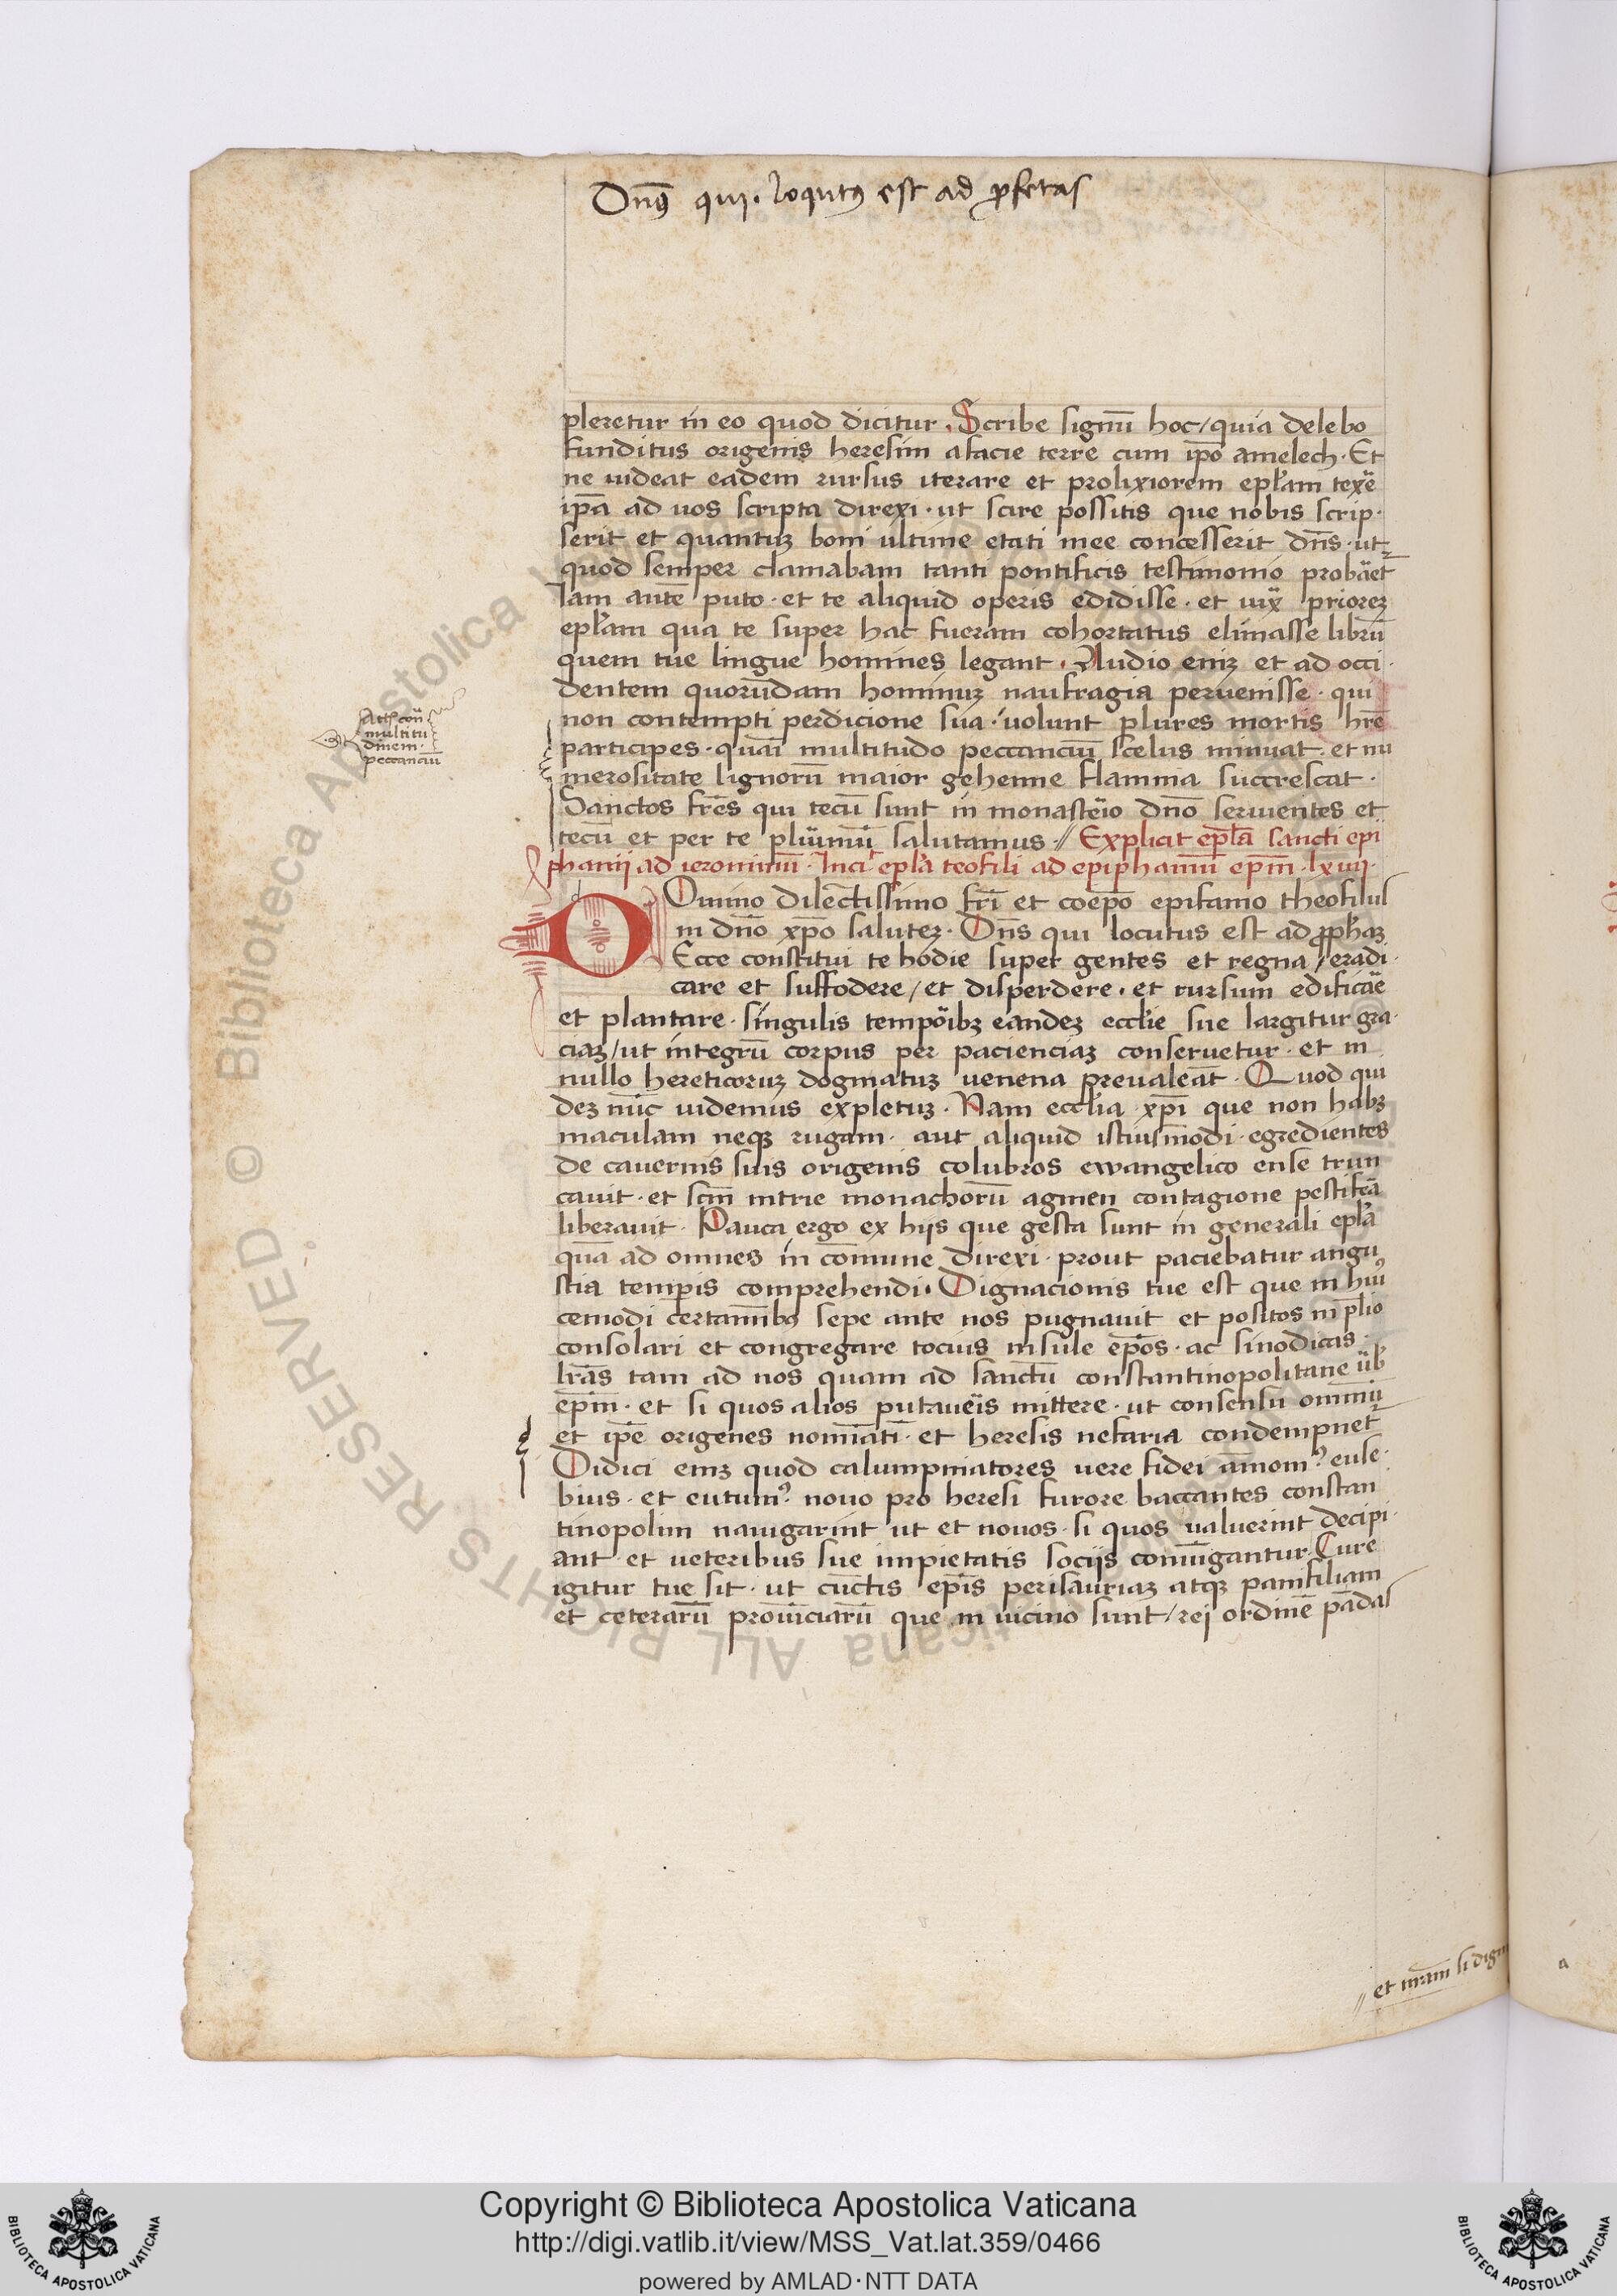 Dn̄s qui. loqutꝰ est ad ꝓfetas
pleretur in eo quod dicitur. Scribe signū hoc/quia delebo
funditus origenis heresim afacie terre cum ip̄o amelech. Et
ne uideat eadem rursus iterare et prolixiorem ep̄lam texe
ip̄a ad uos scripta direxi. ut scire possitis que nobis scrip
serit et quantuꝫ boni ultime etati mee concesserit dn̄s. ut
quod semper clamabam tanti pontificis testimonio probaet
Iam ante puto. et te aliquid operis edidisse. et iuxͣ prioreꝫ
ep̄lam qua te super hac fueram cohortatus elimasse librū
quem tue lingue homines legant. Audio eniꝫ et ad occi
dentem quorūdam hominuꝫ naufragia peruenisse. qui
non contempti perdicione sua. uolunt plures mortis hr̄e
participes. quasi multitudo peccanciū scelus minuat. et nu
merositate lignorū maior gehenne flamma succrescat.
Sanctos fr̄es qui tecū sunt in monasteio dn̄o seruientes et
tecū et per te plurimū salutamus. // Explicit ep̄la sancti epi
phanij ad ieronimū. Inci ep̄la teofili ad epiphaniū ep̄m. lxviij.
Omino dilectissimo fr̄i et coep̄o epifanio theofilus
in dn̄o xp̄o saluteꝫ. Dn̄s qui locutus est ad ꝓphaꝫ
Ecce constitui te hodie super gentes et regna/eradi
care et suffodere/et disperdere. et rursum edificae
et plantare. singulis tempoibꝫ eandeꝫ ecclie sue largitur gra
ciaꝫ/ut integrū corpus per pacienciaꝫ conseruetur. et in
nullo hereticoruꝫ dogmatuꝫ uenena preualeāt. Quod qui
deꝫ nūc uidemus expletuꝫ. Nam ecclia xp̄i que non habꝫ
maculam neqꝫ rugam. aut aliquid istiusmodi. egredientes
de cauernis suis origenis colubros ewangelico ense trun
cauit. et sc̄m nitrie monachorū agmen contagione pestifea
liberauit. Pauca ergo ex hijs que gesta sunt in generali ep̄la
quā ad omnes in cōmune direxi. prout paciebatur angu
stia temp̄is comprehendi. Dignacionis tue est que in huiꝰ
cemodi certamībꝰ sepe ante nos pugnauit et positos in p̄lio
consolari et congregare tocius insule ep̄os. ac sinodicas
lr̄as tam ad nos quam ad sanctū constantinopolitane urb̄
ep̄m. et si quos alios putaueis mittere. ut consensu omniū
et ip̄e origenes nomīati. et heresis nefaria condempnet
Didici eniꝫ quod calumpniatores uere fidei amoniꝰ. euse
bius. et eutimꝰ. nouo pro heresi furore baccantes constan
tinopolim nauigarint ut et nouos. si quos ualuerint decipi
ant. et ueteribus sue impietatis socijs coniūgantur. Cure
igitur tue sit. ut cūctis ep̄is perisauriaꝫ atqꝫ panfiliam
et ceterarū prouīciarū que in uicino sunt/rej ordinē pādas
multitu
dinem.
peccanciū
// et nr̄am si dign
a
Copyright © Biblioteca Apostolica Vaticana
http://digi.vatlib.it/view/MSS_Vat.lat.359/0466
powered by AMLAD·NTT DATA
BIBLIOTECA APOSTOLICA VATICANA
BIBLIOTECA APOSTOLICA VATICANA